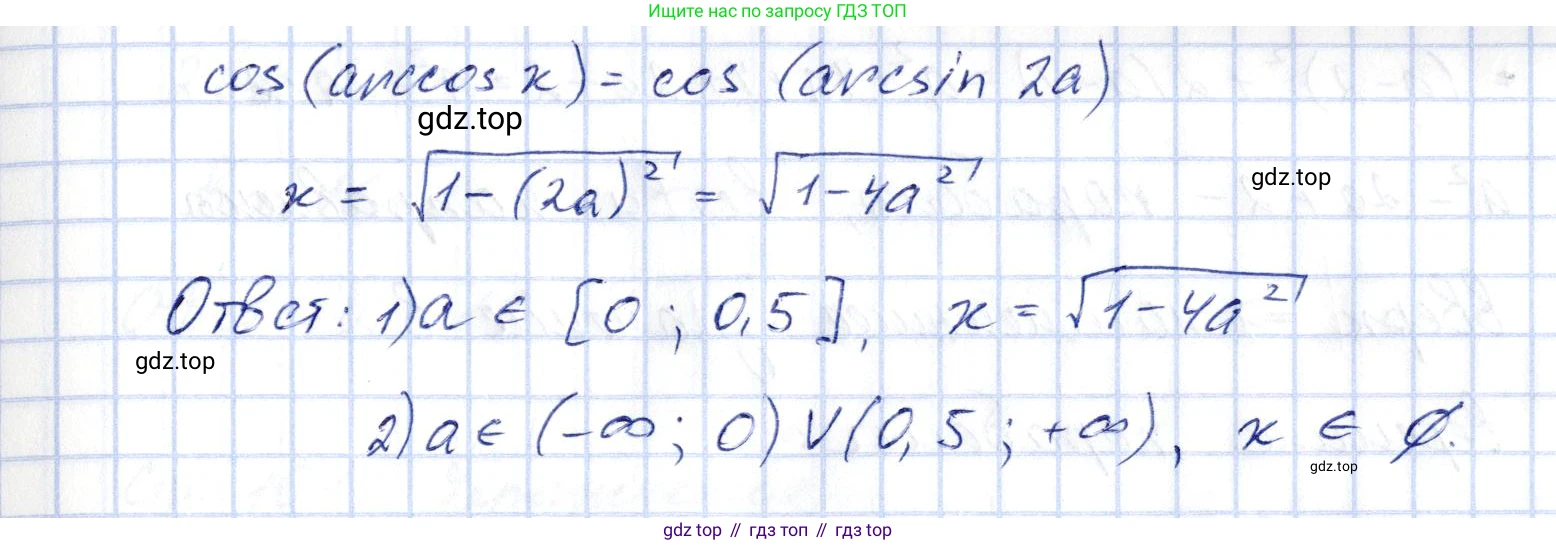 Ищите нас по запросу ГДЗ ТОП
cos(arccos x) = cos (arcsin 2a)
gdz.top
x = √(1-(2a)²) = √(1-4a²)
gdz.top
Ответ: 1) a ∈ [0 ; 0,5], x = √(1-4a²)
gdz.top
2) a ∈ (-∞; 0) ∨ (0,5 ; +∞), x ∈ ∅.
gdz.top
gdz top // гдз топ // гдз top